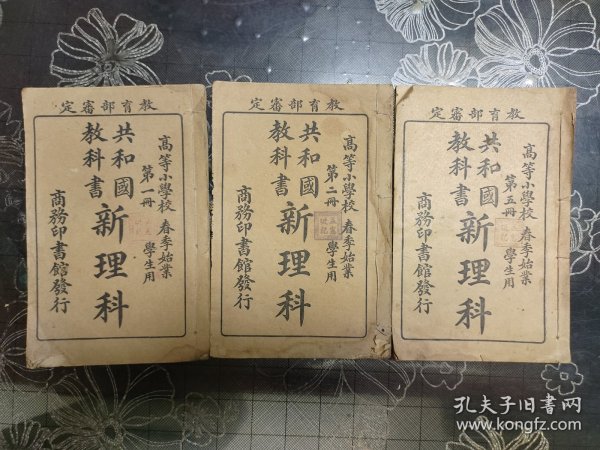 教育部審定
高等小學校 春季始業
第一冊 學生用
共和國
教科書
新理科
商務印書館發行
教育部審定
高等小學校 春季始業
第二冊 學生用
共和國
教科書
新理科
商務印書館發行
教育部審定
高等小學校 春季始業
第五冊 學生用
共和國
教科書
新理科
商務印書館發行
孔夫子旧书网
www.kongfz.com